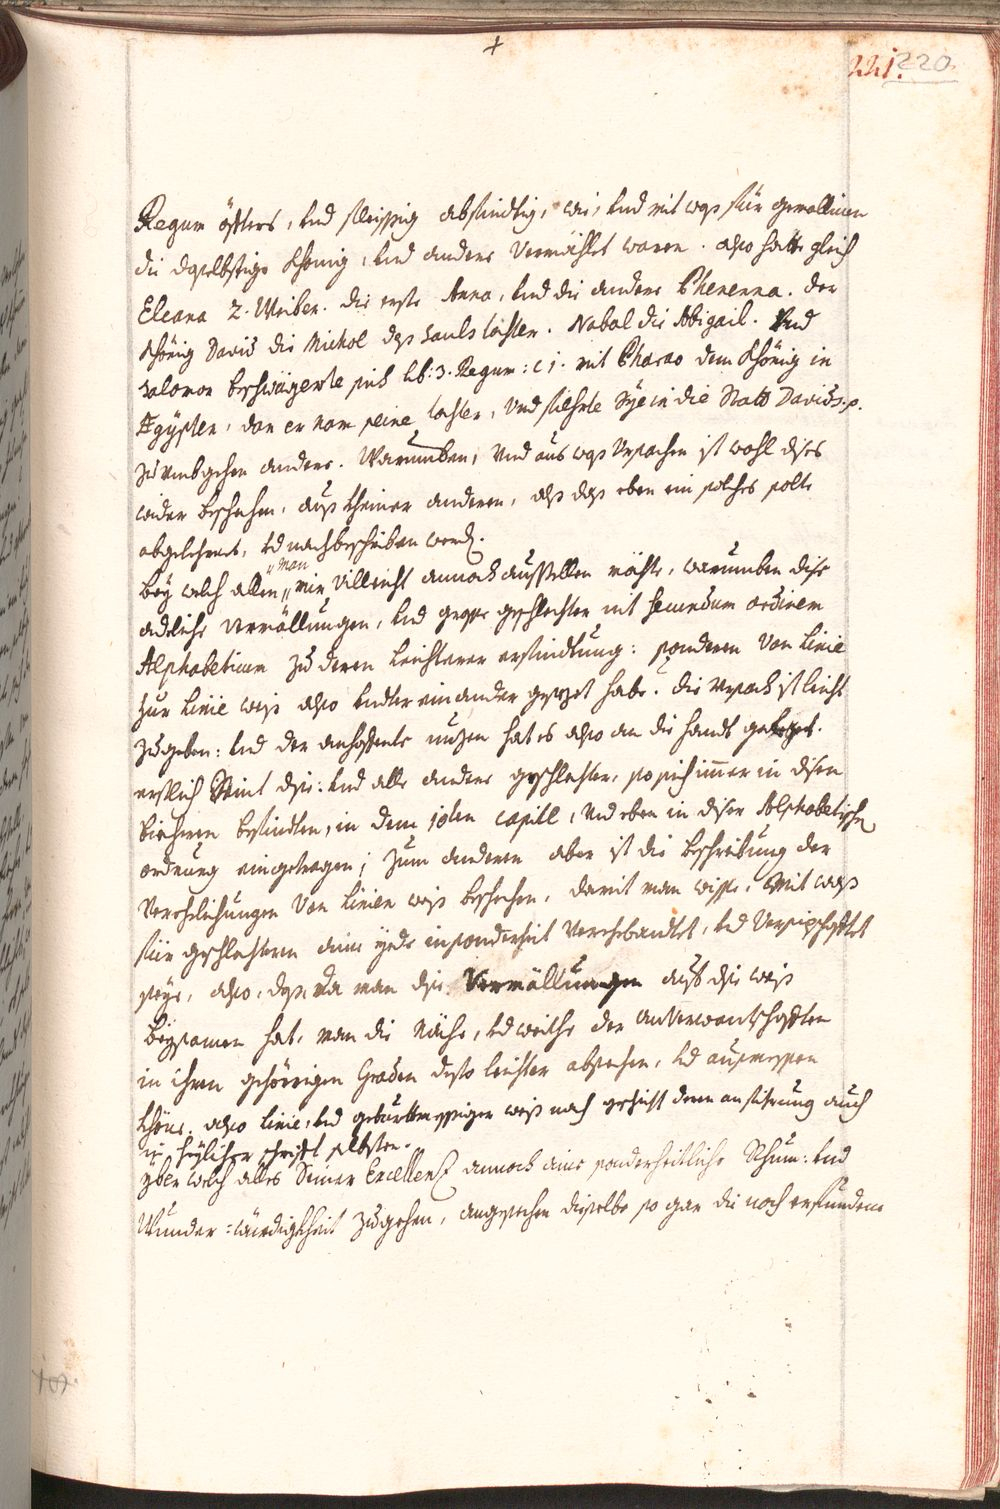 +
221. 220.
Regum öffters, und fleissig abfindtig, wie, und mit wass für gemallinen
die daselbstige König, und andere Vermählet waren. also hatte gleich
Elcana 2. Weiber. die erste Anna, und die andere Phenenna. der
König David die Michol dess Sauls tochter. Nabal die Abigail. Und
Salomon beschwägerte sich lb: 3. Regum: c 1. mit Pharao dem König in
Ægypten, dan er nam seine tochter, und fiehrte Sye in die Statt Davids. p.
zu umbgehen andere. Warumben, und aus wass Ursachen ist wohl dises
wider beschehen, auss kheiner anderen, alss dass eben ein solches solte
abgelehrnet, und nachbeschriben werden.
bey welch allen "man" mir villeicht annoch ausstellen möchte, warumben dise
adeliche Vermällungen, und grosse geschlechter nit secundum ordinem
Alphabeticum zu deren leichterer erfindtung: sonderen von Linie
zur Linie weiss also under einander gesezet habe? die Ursach ist leicht
zu geben: und der anhoffente nuzen hat es also an die handt gelegt.
erstlich seint dise: und alle andere geschlechter, so sich immer in disen
biecheren befindten, in dem 10ten capitl, und eben in diser Alphabetischen
ordnung eingetragen; zum anderen aber ist die beschreibung der
Verehelichungen von Linien weiss beschehen, damit man wisse, mit wass
für geschlechteren aine yede insonderheit Verehebandtet, und Versipschafftet
seye, also, dass, da man dise Vermällungen auf dise weiss
beysamen hat, man die Nähe, und weithe der Anverwantschafften
in ihren gehörigen Graden desto leichter absehen, und ausmessen
khöne. also Linie, und geburttmessiger weiss nach geschicht deren anfihrung auch
in heyliger schrifft selbsten.
yber welch alles Seiner Excellenz annoch aine sonderheitliche Ruhm: und
Wunder=würdigkheit zugehen, angesechen dieselbe so gar die noch erfundene